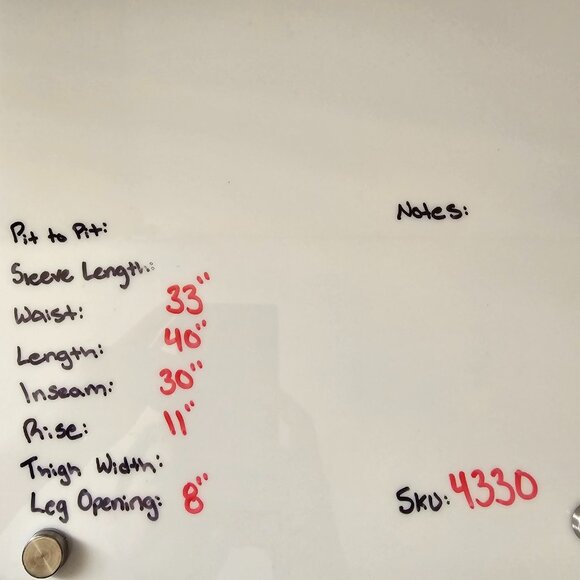 Notes:
Pit to Pit:
Sleeve Length:
Waist: 33"
Length: 40"
Inseam: 30"
Rise: 11"
Thigh Width:
Leg Opening: 8"
SKU: 4330